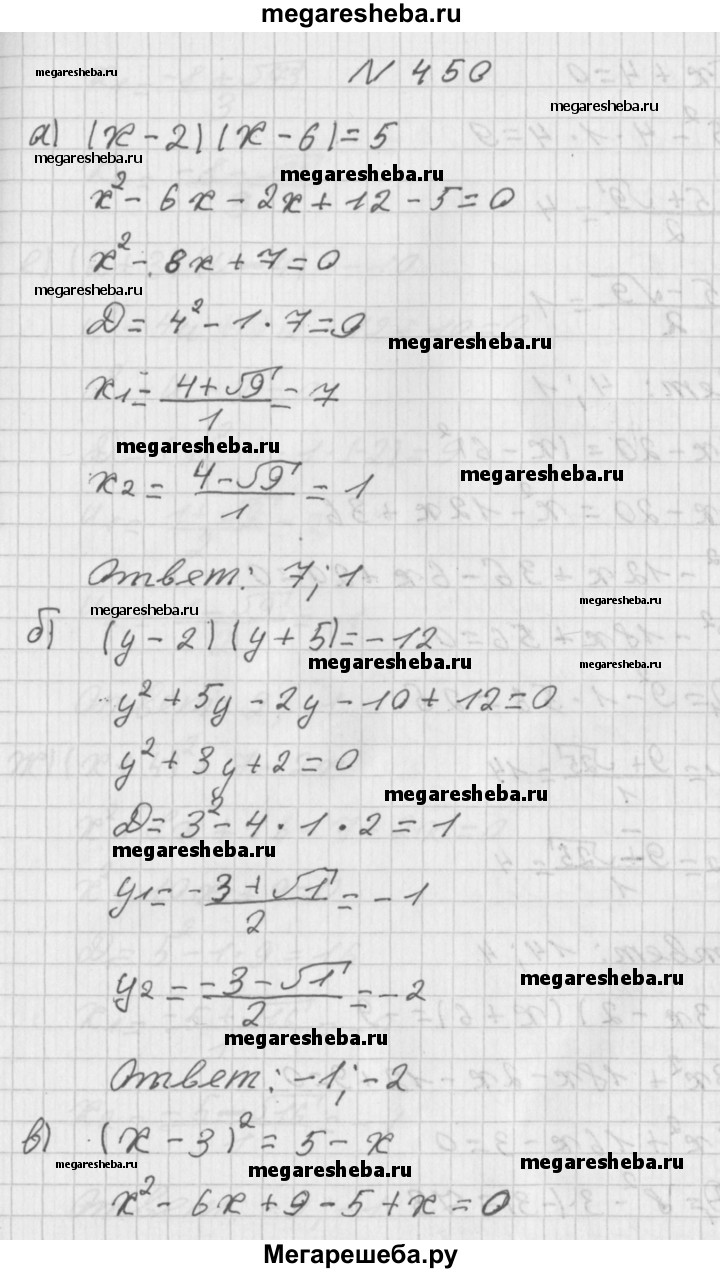 megaresheba.ru
megaresheba.ru
N 450
megaresheba.ru
а) (x - 2)(x - 6) = 5
megaresheba.ru
megaresheba.ru
x² - 6x - 2x + 12 - 5 = 0
x² - 8x + 7 = 0
megaresheba.ru
D = 4² - 1 · 7 = 9
megaresheba.ru
x1 = (4 + √9)/1 = 7
megaresheba.ru
x2 = (4 - √9)/1 = 1
megaresheba.ru
Ответ: 7; 1
megaresheba.ru
megaresheba.ru
б) (y - 2)(y + 5) = -12
megaresheba.ru
megaresheba.ru
y² + 5y - 2y - 10 + 12 = 0
y² + 3y + 2 = 0
megaresheba.ru
D = 3² - 4 · 1 · 2 = 1
megaresheba.ru
y1 = (-3 + √1)/2 = -1
y2 = (-3 - √1)/2 = -2
megaresheba.ru
megaresheba.ru
Ответ: -1; -2
в) (x - 3)² = 5 - x
megaresheba.ru
megaresheba.ru
megaresheba.ru
x² - 6x + 9 - 5 + x = 0
Мегарешеба.ру